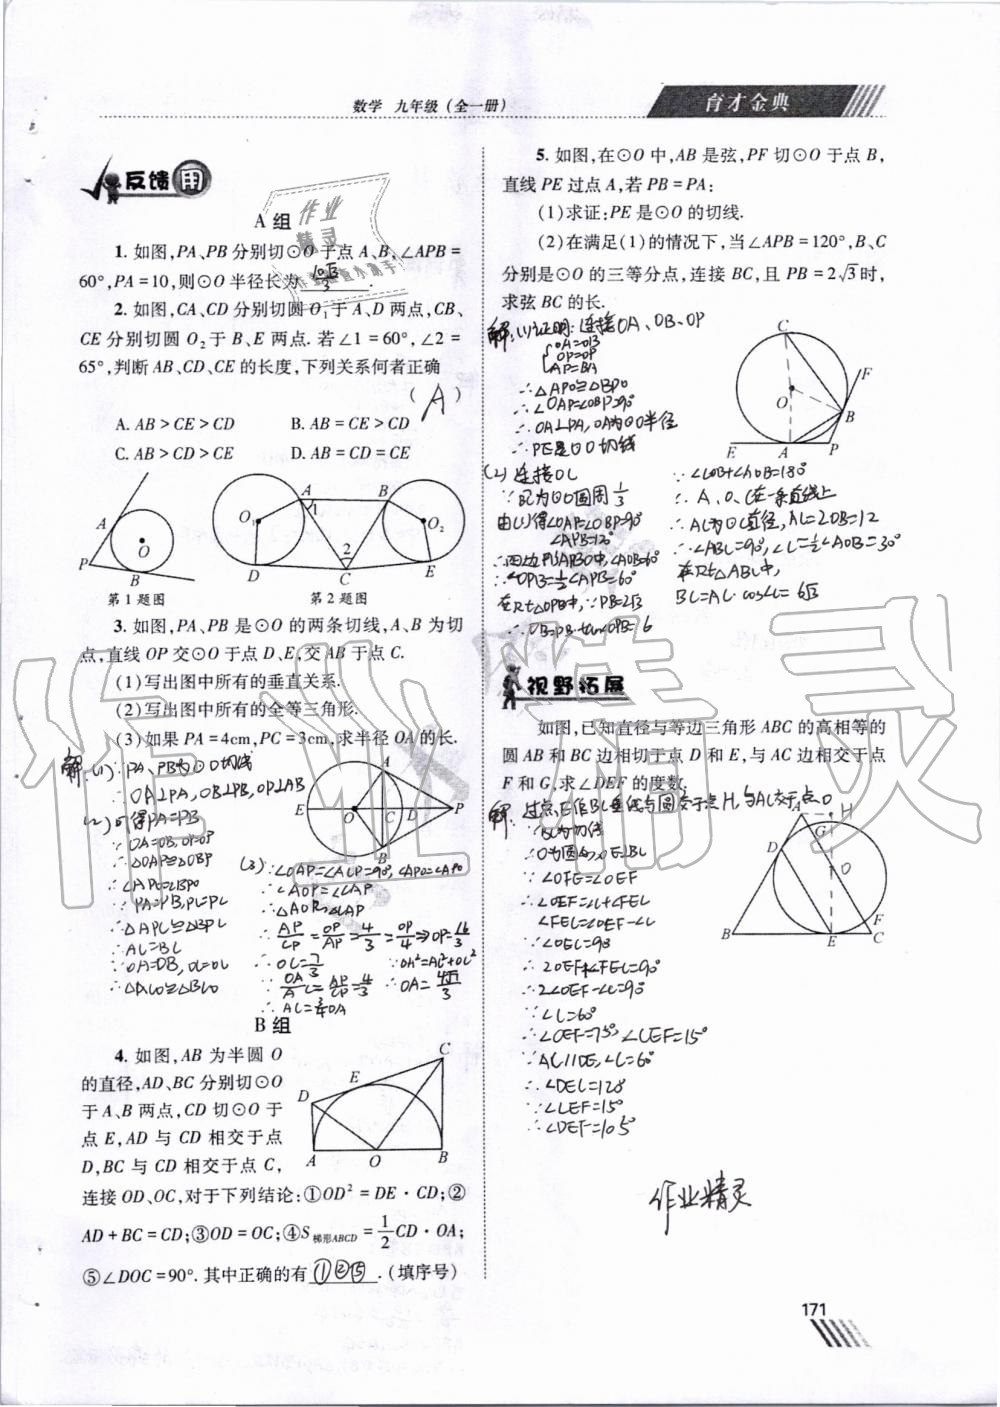 数学 九年级(全一册)
育才金典
反馈用
A组
1. 如图,PA、PB分别切⊙O于点A、B,∠APB=
60°,PA=10,则⊙O半径长为 10√3/3 .
2. 如图,CA、CD分别切圆O₁于A、D两点,CB、
CE分别切圆O₂于B、E两点.若∠1=60°,∠2=
65°,判断AB、CD、CE的长度,下列关系何者正确
(A)
A. AB>CE>CD B. AB=CE>CD
C. AB>CD>CE D. AB=CD=CE
第1题图 第2题图
3. 如图,PA、PB是⊙O的两条切线,A、B为切
点,直线OP交⊙O于点D、E,交AB于点C.
(1)写出图中所有的垂直关系.
(2)写出图中所有的全等三角形.
(3)如果PA=4cm,PC=3cm,求半径OA的长.
解:(1)∵PA、PB为⊙O切线
∴OA⊥PA, OB⊥PB, OP⊥AB
(2)可得PA=PB
∵OA=OB, OP=OP
∴△OAP≌△OBP
∴∠APO=∠BPO
∵PA=PB, PC=PC
∴△APC≌△BPC
∴AC=BC
∵OA=OB, OC=OC
∴△ACO≌△BCO
(3)∵∠OAP=∠ACP=90°, ∠APO=∠APO
∴∠AOP=∠CAP
∴AP/CP=OP/AP=4/3=OP/4⇒OP=16/3
∴OC=7/3 ∵OA²=AC²+OC²
∴AC=3/4OA
B组
4. 如图,AB为半圆O
的直径,AD、BC分别切⊙O
于A、B两点,CD切⊙O于
点E,AD与CD相交于点
D,BC与CD相交于点C,
连接OD、OC,对于下列结论:①OD²=DE·CD;②
AD+BC=CD;③OD=OC;④S梯形ABCD=1/2CD·OA;
⑤∠DOC=90°.其中正确的有 ①②⑤ .(填序号)
5. 如图,在⊙O中,AB是弦,PF切⊙O于点B,
直线PE过点A,若PB=PA:
(1)求证:PE是⊙O的切线.
(2)在满足(1)的情况下,当∠APB=120°,B、C
分别是⊙O的三等分点,连接BC,且PB=2√3时,
求弦BC的长.
解:(1)证明:连接OA、OB、OP
OA=OB
OP=OP
AP=BA
∴△APO≌△BPO
∴∠OAP=∠OBP=90°
∴OA⊥PA, OA为⊙O半径
∴PE是⊙O切线
(2)连接OC
由(1)得∠OAP=∠OBP=90°
∠APB=120°
∴四边形APBO中,∠AOB=60°
∴∠OPB=1/2∠APB=60°
在Rt△OPB中,∵PB=2√3
∴OB=PB·tan∠OPB=6
∵∠COB+∠AOB=180°
∴A、O、C在一条直线上
∴AC为⊙O直径,AC=2OB=12
∴∠ABC=90°,∠C=1/2∠AOB=30°
在Rt△ABC中,
BC=AC·cos∠C=6√3
视野拓展
如图,已知直径与等边三角形ABC的高相等的
圆AB和BC边相切于点D和E,与AC边相交于点
F和G,求∠DEF的度数.
解:过点E作BC垂线与圆交于点H,与AC交于点O
∵BC为切线
∴O为圆心,OE⊥BC
∵∠OFE=∠OEF
∴∠OEF=∠C+∠FEC
∠FEC=∠OEF-∠C
∵∠OEC=90
∴∠OEF+∠FEC=90°
∴2∠OEF-∠C=90
∵∠C=60°
∴∠OEF=75°,∠CEF=15°
∵AC∥DE,∠C=60°
∴∠DEC=120°
∵∠CEF=15°
∴∠DEF=105°
作业精灵
171